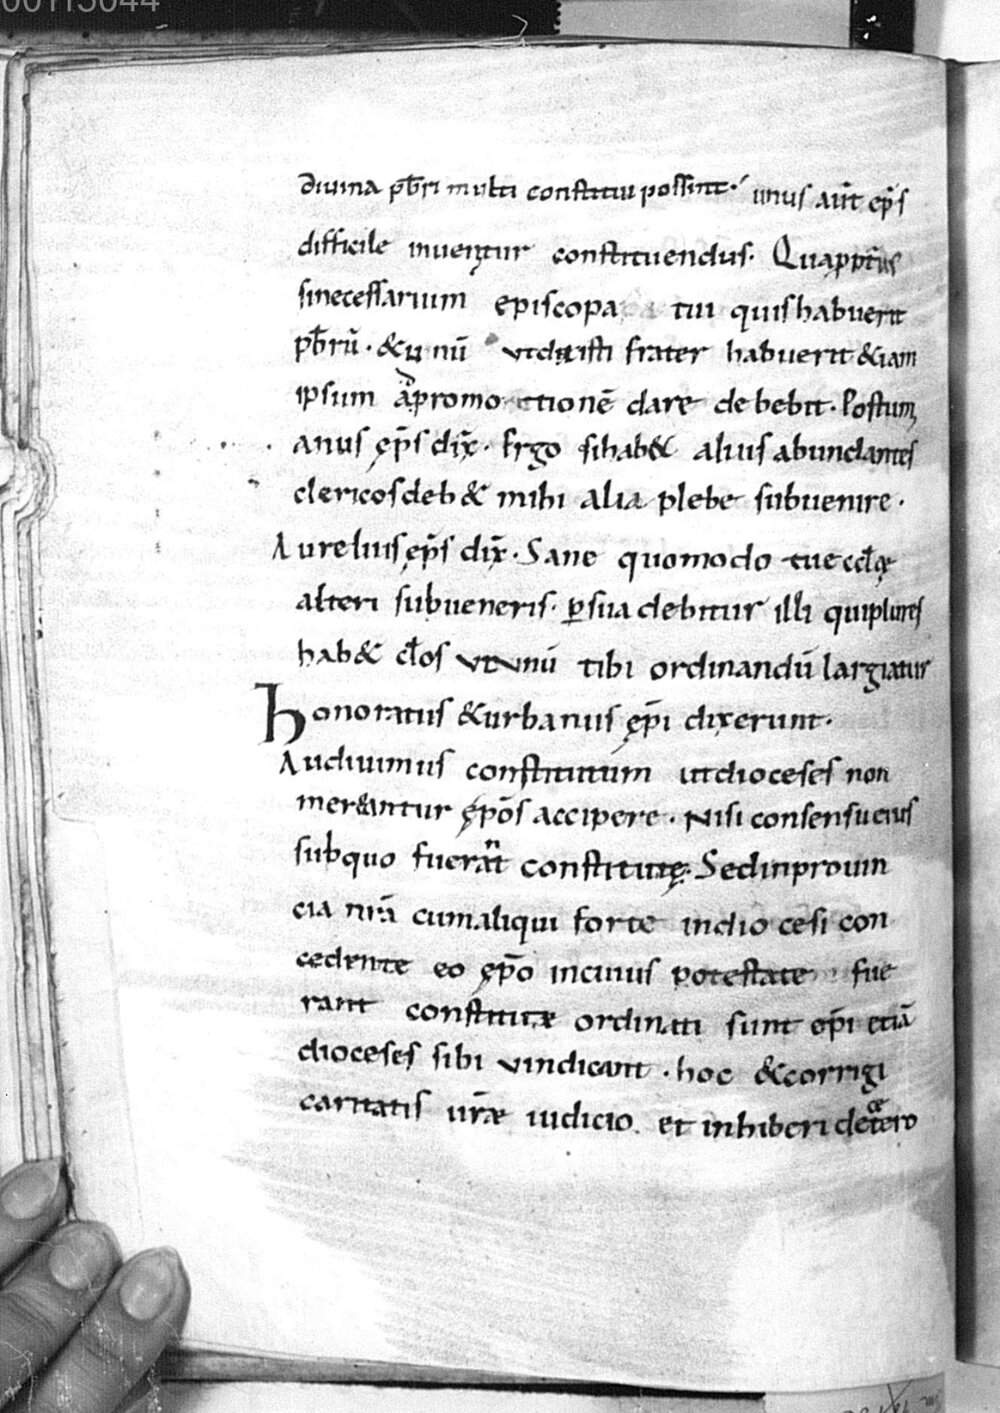 00115044
diuina pb̅ri multi constitui possint· unus aut̅ ep̅s
difficile inuenitur constituendus· Quapropt̅
si necessarium episcopatui quis habuerit
pb̅rū· & unū ut dixisti frater habuerit & iam
ipsum ad promotionē dare debebit· Postum
anus ęp̅s dix̅· Ergo si hab& alius abundantes
clericos deb& mihi alia plebe subuenire·
Aurelius ęp̅s dix̅· Sane quomodo tue eccl̅ę
alteri subueneris· ꝑsuadebitur illi qui plures
hab& cl̅os ut unū tibi ordinandū largiatur
Honoratus & urbanus ęp̅i dixerunt·
Audiuimus constitutum ut dioceses non
mereantur ęp̅os accipere· Nisi consensu eius
sub quo fuerant constitutę· Sed in prouin
cia nr̅ā cum aliqui forte in diocesi con
cedente eo ęp̅o in cuius potestate fue
rant constitutæ ordinati sunt ep̅i etiā
dioceses sibi vindicant· hoc & corrigi
caritatis ur̅æ iudicio et inhiberi de cetero